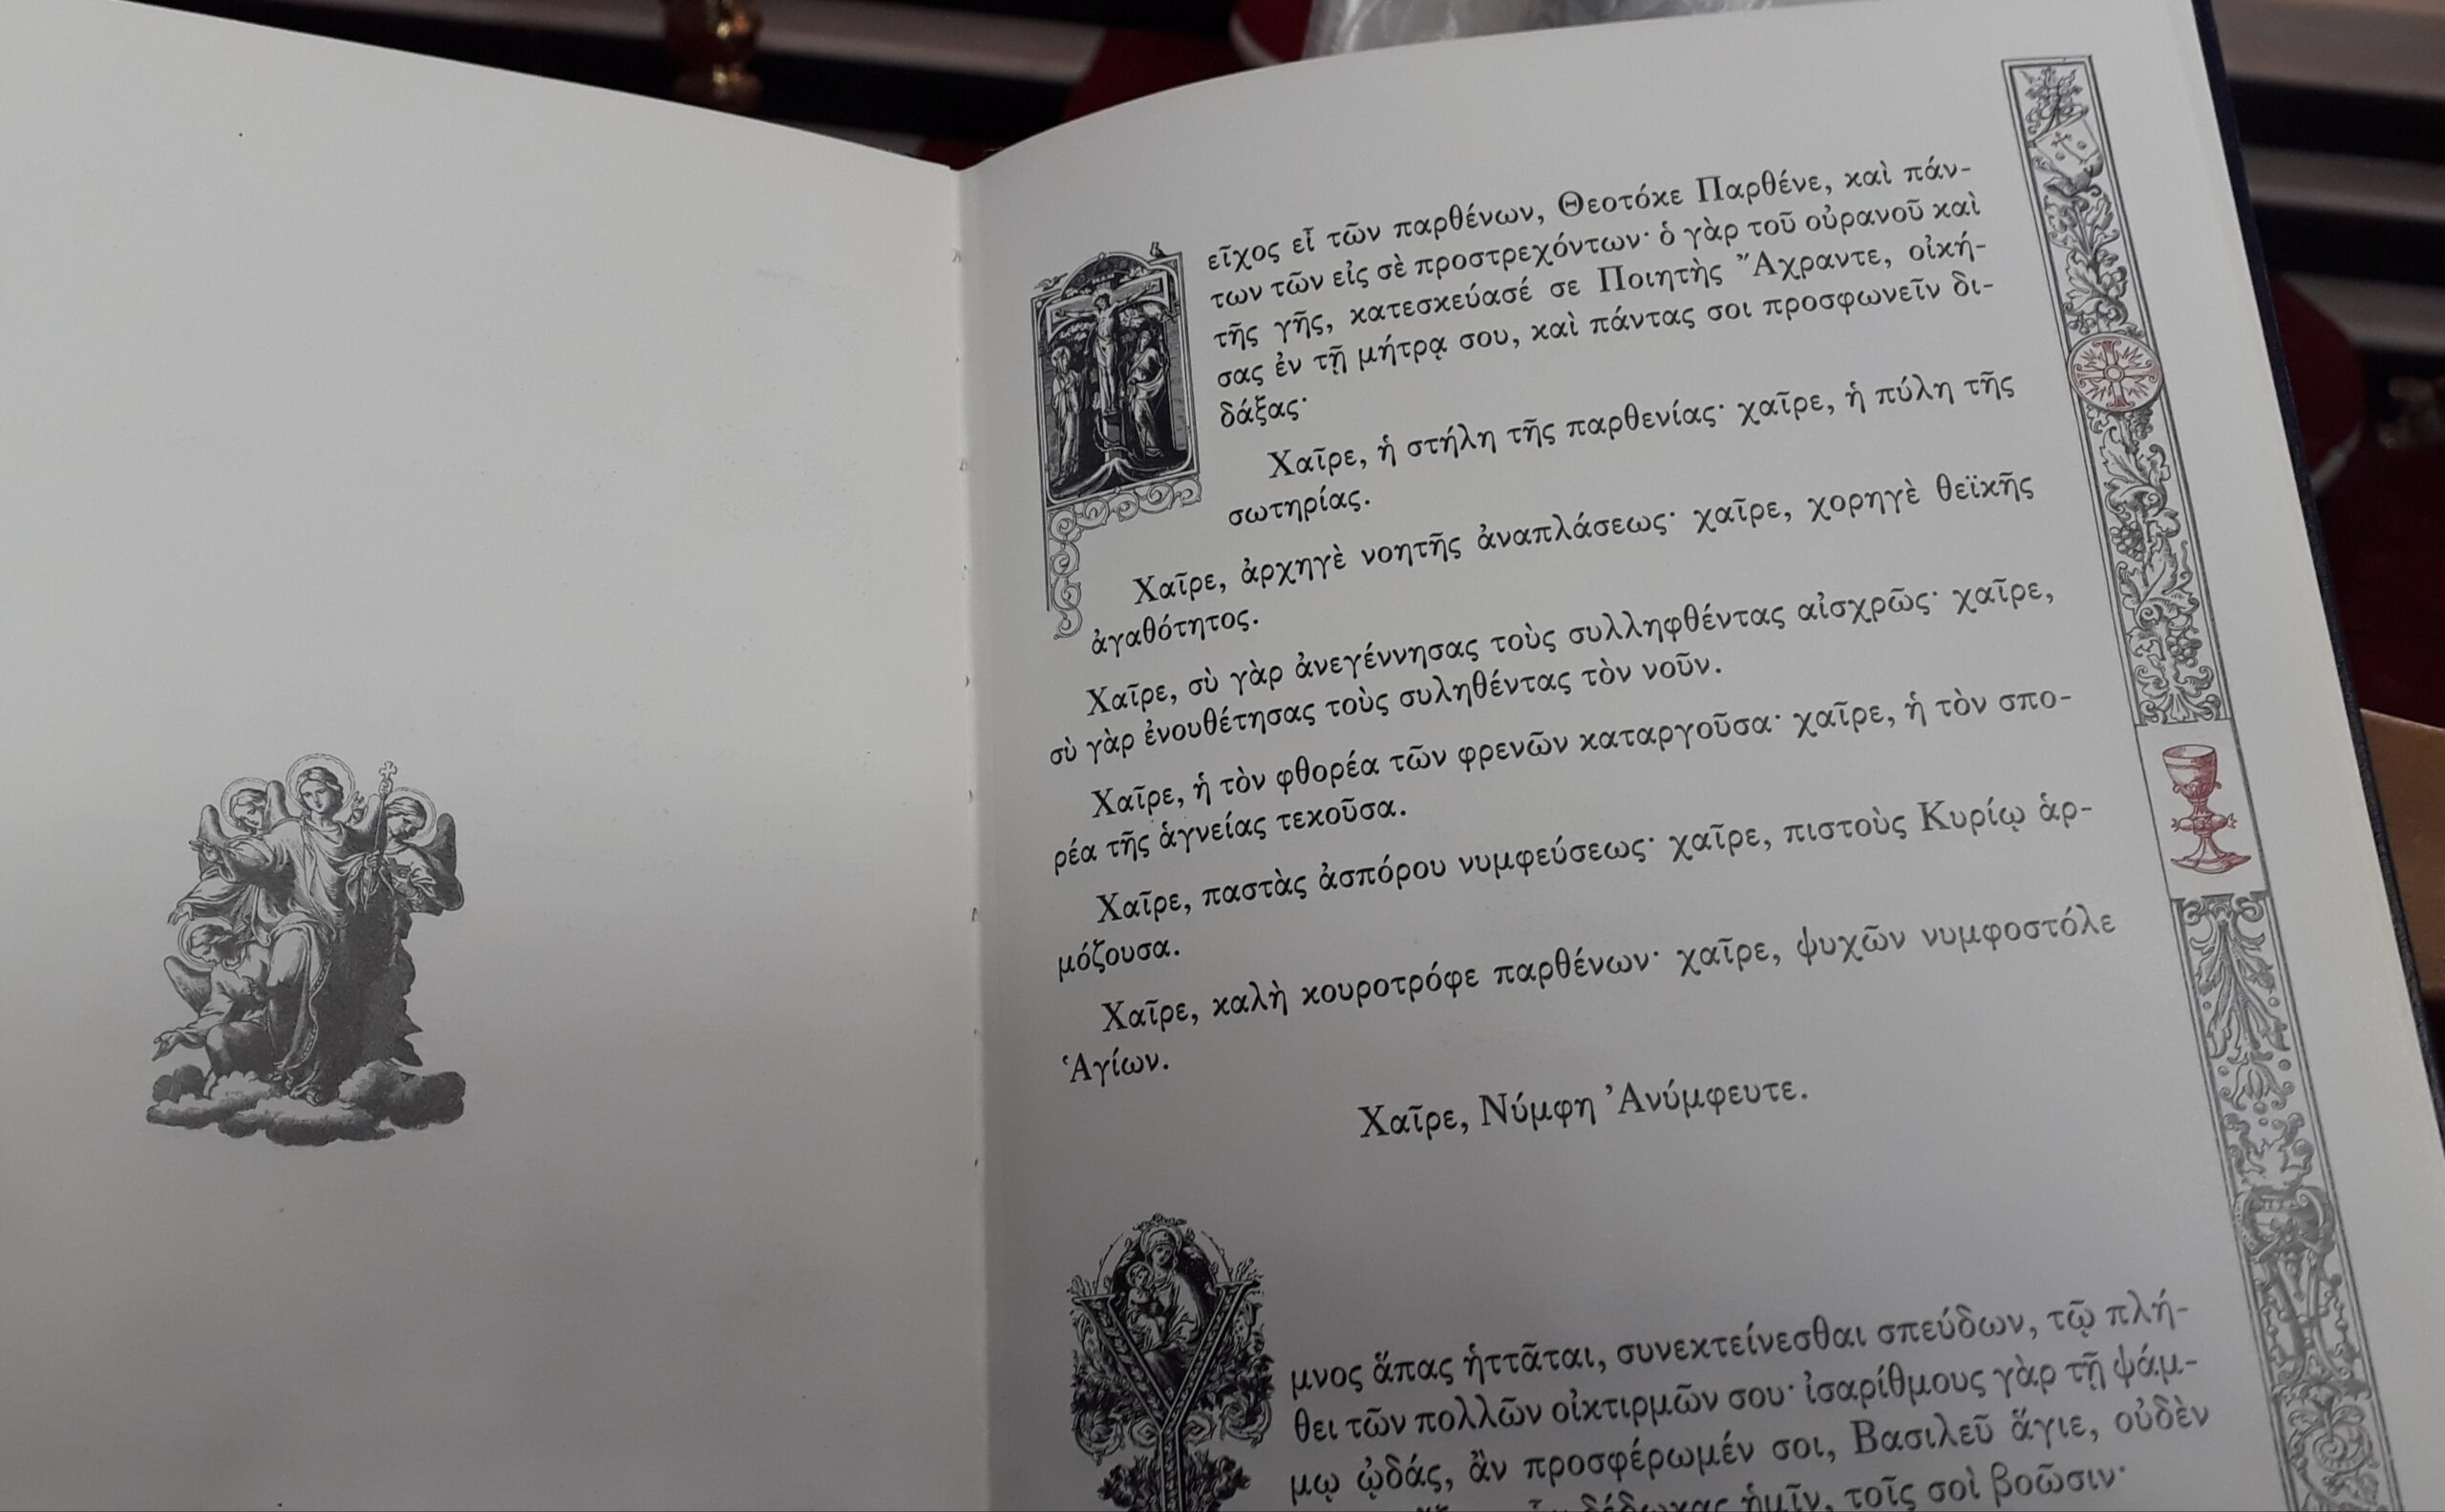 Τεῖχος εἶ τῶν παρθένων, Θεοτόκε Παρθένε, καὶ πάν-
των τῶν εἰς σὲ προστρεχόντων· ὁ γὰρ τοῦ οὐρανοῦ καὶ
τῆς γῆς, κατεσκεύασέ σε Ποιητὴς Ἄχραντε, οἰκή-
σας ἐν τῇ μήτρᾳ σου, καὶ πάντας σοι προσφωνεῖν δι-
δάξας·
Χαῖρε, ἡ στήλη τῆς παρθενίας· χαῖρε, ἡ πύλη τῆς
σωτηρίας.
Χαῖρε, ἀρχηγὲ νοητῆς ἀναπλάσεως· χαῖρε, χορηγὲ θεϊκῆς
ἀγαθότητος.
Χαῖρε, σὺ γὰρ ἀνεγέννησας τοὺς συλληφθέντας αἰσχρῶς· χαῖρε,
σὺ γὰρ ἐνουθέτησας τοὺς συληθέντας τὸν νοῦν.
Χαῖρε, ἡ τὸν φθορέα τῶν φρενῶν καταργοῦσα· χαῖρε, ἡ τὸν σπο-
ρέα τῆς ἁγνείας τεκοῦσα.
Χαῖρε, παστὰς ἀσπόρου νυμφεύσεως· χαῖρε, πιστοὺς Κυρίῳ ἁρ-
μόζουσα.
Χαῖρε, καλὴ κουροτρόφε παρθένων· χαῖρε, ψυχῶν νυμφοστόλε
Ἁγίων.
Χαῖρε, Νύμφη Ἀνύμφευτε.
Ὕμνος ἅπας ἡττᾶται, συνεκτείνεσθαι σπεύδων, τῷ πλή-
θει τῶν πολλῶν οἰκτιρμῶν σου· ἰσαρίθμους γὰρ τῇ ψάμ-
μῳ ᾠδάς, ἂν προσφέρωμέν σοι, Βασιλεῦ ἅγιε, οὐδὲν
δέδωκας ἡμῖν, τοῖς σοὶ βοῶσιν·